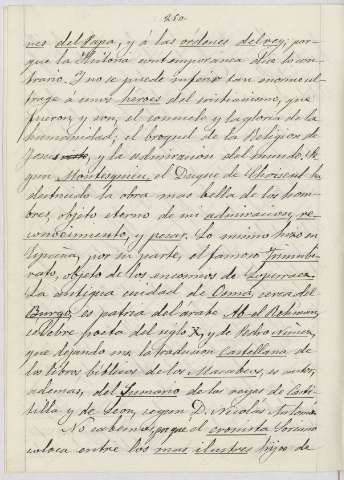 250.
nes del Papa, y á las ordenes del rey; por-
que la Historia contemporanea dice lo con-
trario. Y no se puede inferir tan enorme ul-
trage á unos héroes del cristianismo, que
fueron, y son, el consuelo y la gloria de la
humanidad; el broquel de la Religion de
Jesus, y la admiracion del mundo. Se-
gun Montesquieu, el Duque de Choiseul ha
destruido la obra mas bella de los hom-
bres, objeto eterno de mi admiracion, re-
conocimiento, y pesar. Lo mismo hizo en
España, por su parte, el famoso Triumbi-
rato, objeto de los encomios de Loperraez.
La antigua ciudad de Osma, cerca del
Burgo, es patria del arabe Ab-el-Rahman,
celebre poeta del siglo X, y de Pedro Nuñez,
que dejando en la traducion Castellana de
los libros biblicos de los Macabeos, es autor,
ademas, del Sumario de los reyes de Casti-
tilla y de Leon, segun D. Nicolás Antonio.
No sabemos porqué el cronista Soriano
coloca entre los mas ilustres hijos de